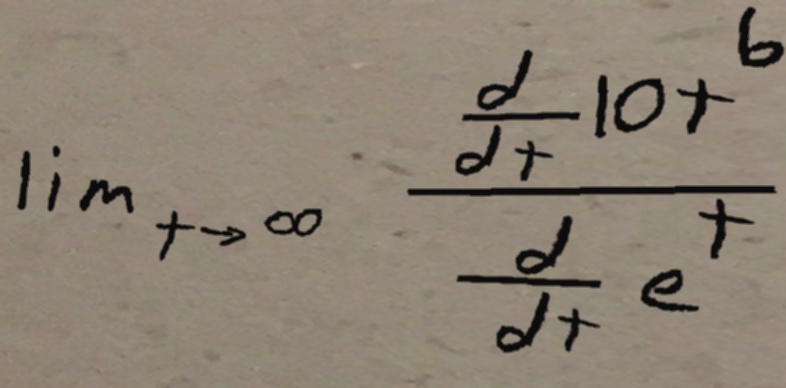 lim t→∞ \frac{\frac{d}{dt} 10t^6}{\frac{d}{dt} e^t}